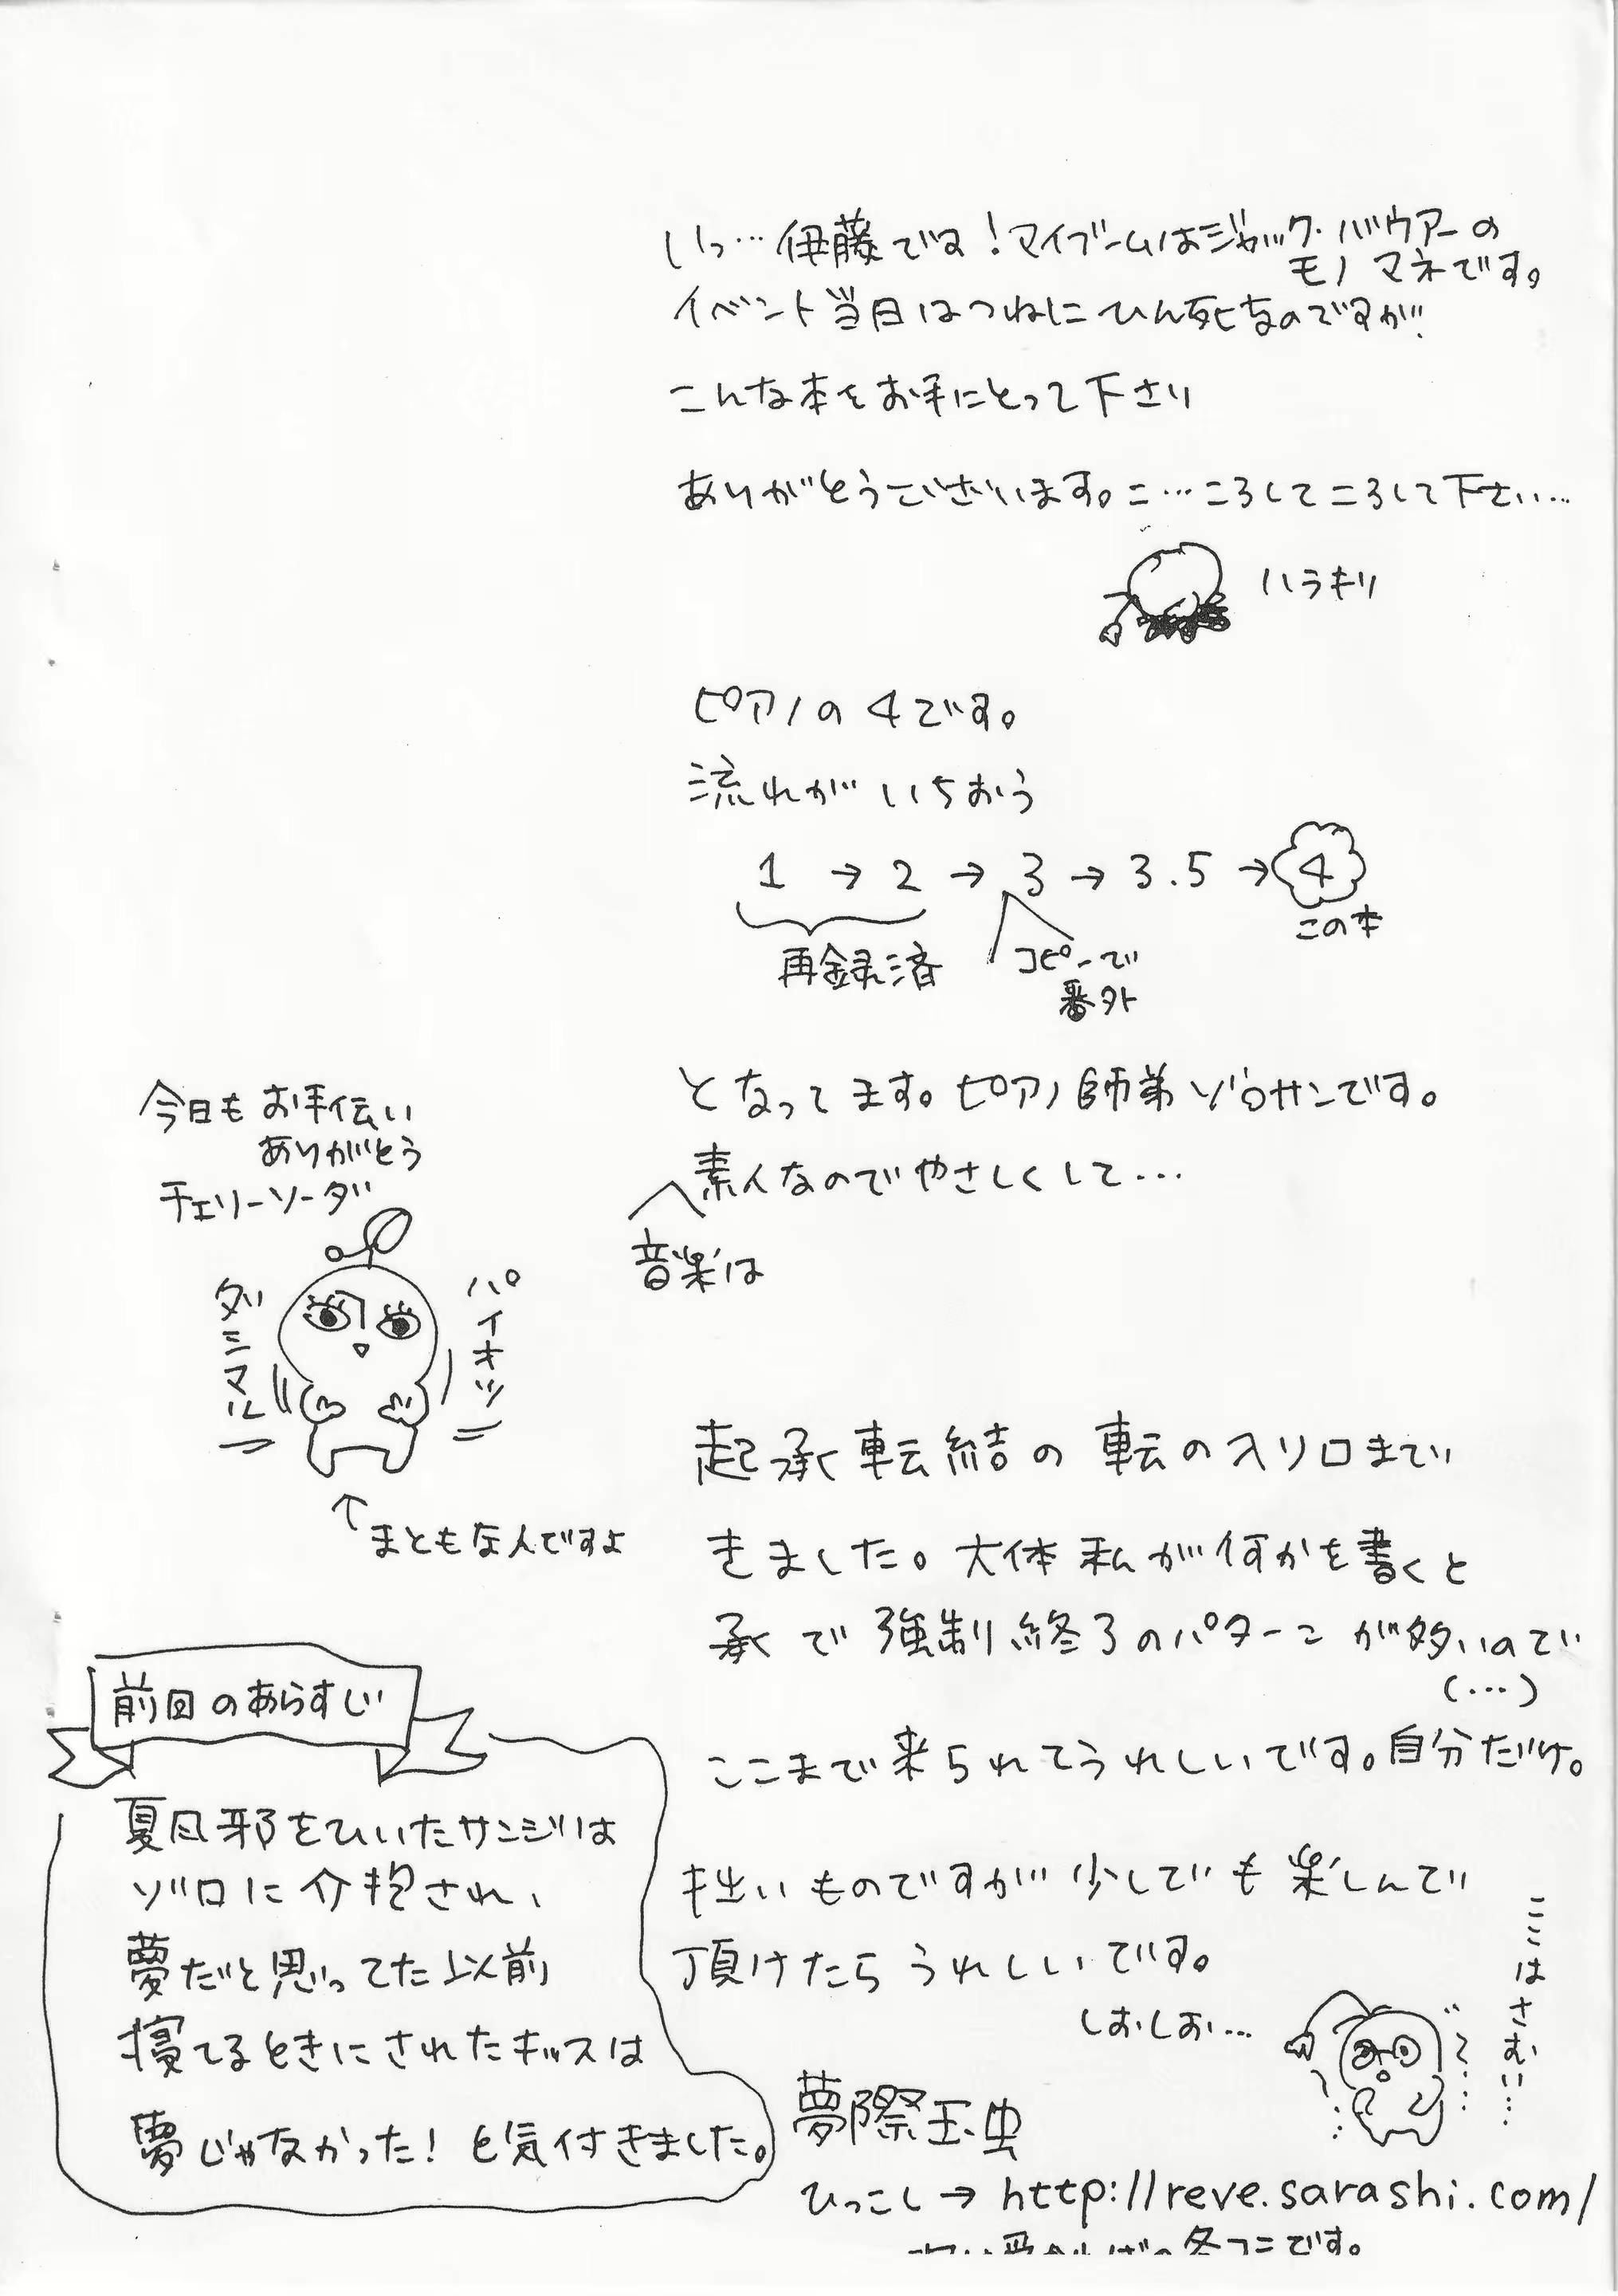 いっ…伊藤です!マイブームはジャック・バウアーの
モノマネです。
イベント当日はつねにひん死なのですが
こんな本をお手にとって下さり
ありがとうございます。こ…ころしてころして下さい…
ハラキリ
ピアノの4です。
流れがいちおう
1 → 2 → 3 → 3.5 → 4
この本
再録済
コピーで
番外
となってます。ピアノ師弟ゾロサンです。
素人なのでやさしくして…
音楽は
今日もお手伝い
ありがとう
チェリーソーダ
パイオツ
ダミマル
↑まともな人ですよ
起承転結の転の入り口まで
きました。大体私が何かを書くと
承で強制終了のパターンが多いので
(…)
ここまで来られてうれしいです。自分だけ。
拙いものですが少しでも楽しんで
頂けたらうれしいです。
しおしお…
ここはさむい…
前回のあらすじ
夏風邪をひいたサンジは
ゾロに介抱され、
夢だと思ってた以前
寝てるときにされたキッスは
夢じゃなかった!と気付きました。
夢際玉虫
ひっこし→ http://reve.sarashi.com/